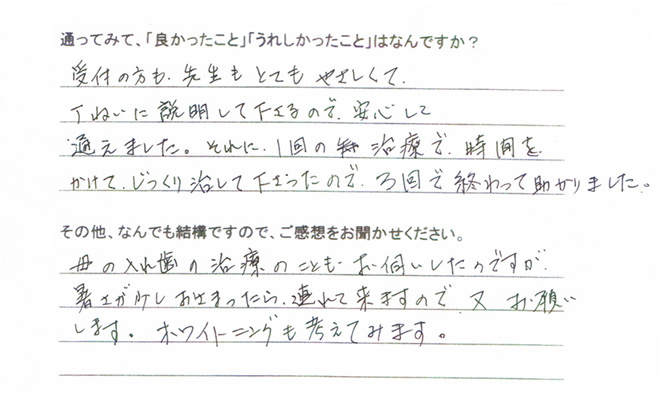 通ってみて、「良かったこと」「うれしかったこと」はなんですか？
受付の方も、先生もとてもやさしくて、
丁ねいに説明して下さるので、安心して
通えました。それに、1回の治療で、時間を
かけて、じっくり治して下さったので、3回で終わって助かりました。
その他、なんでも結構ですので、ご感想をお聞かせください。
母の入れ歯の治療のこともお伺いしたのですが、
暑さが少しおさまったら、連れて来ますので、又お願い
します。ホワイトニングも考えてみます。